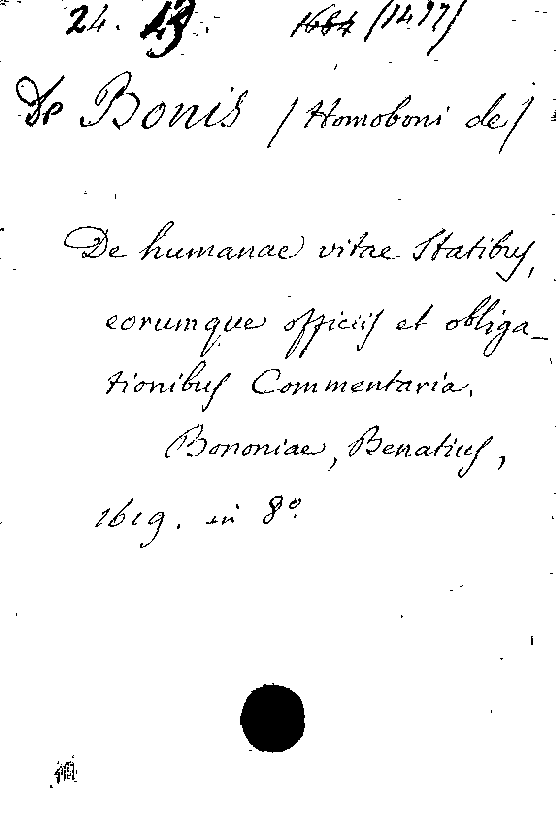 24. 13. 1684 (1477)
De Bonis (Homoboni de)
De humanae vitae Statibus,
eorumque officiis et obliga-
tionibus Commentaria.
Bononiae, Benatius,
1619. in 8º.